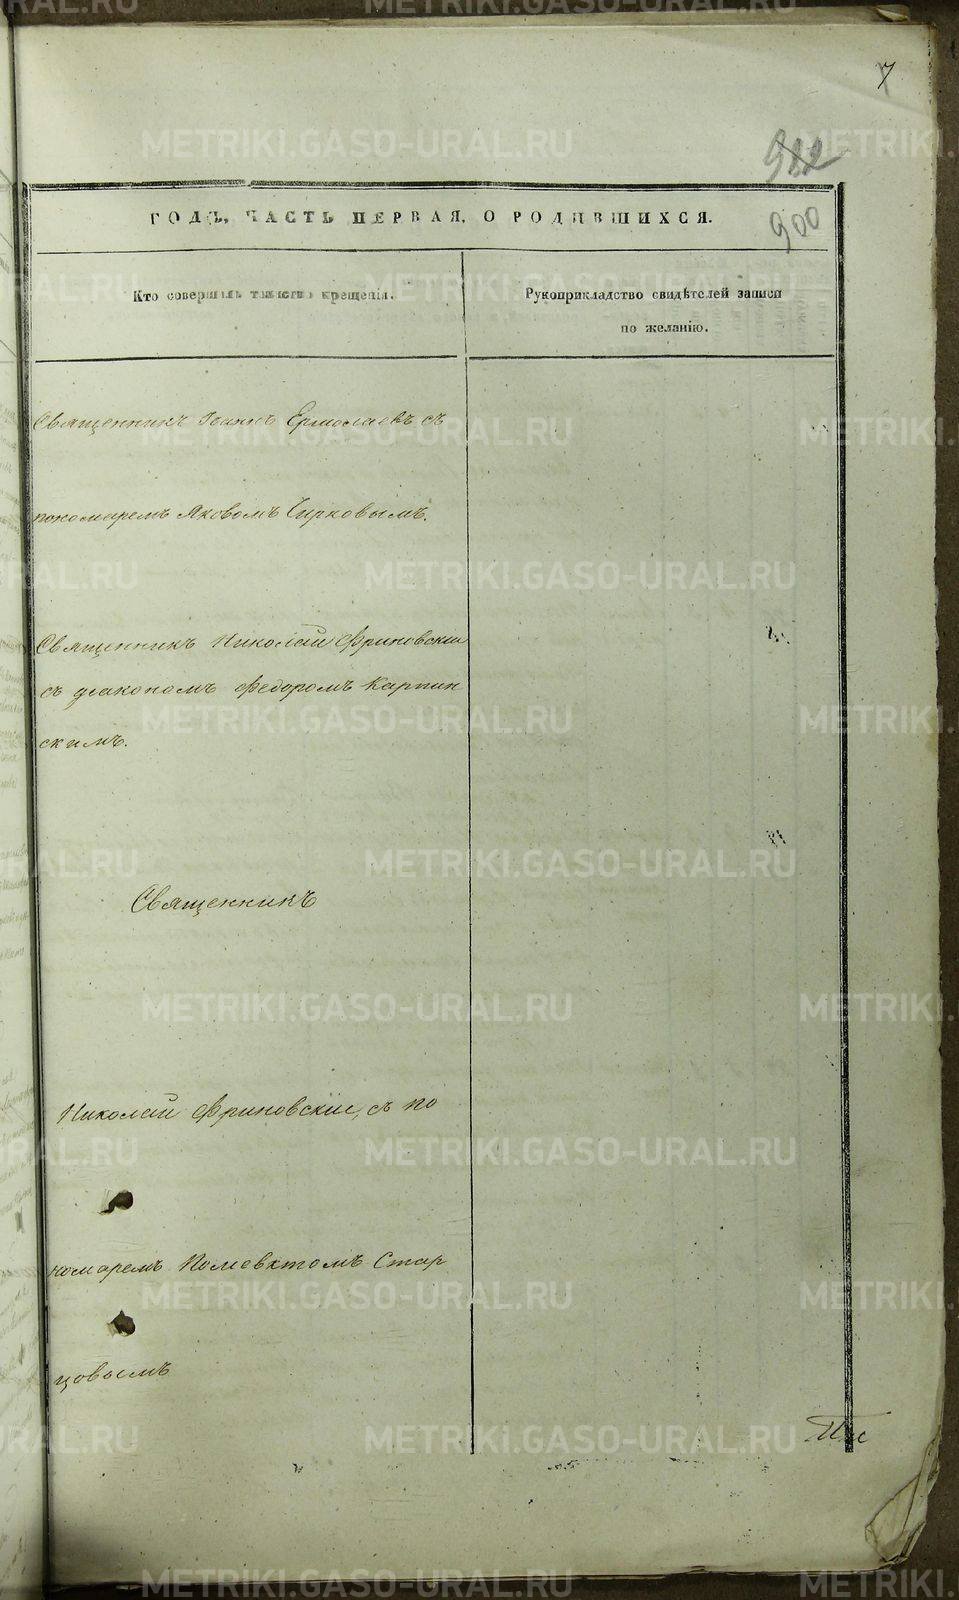 7
982
900
ГОДЪ, ЧАСТЬ ПЕРВАЯ, О РОДИВШИХСЯ.
Кто совершалъ таинство крещенія.
Рукоприкладство свидѣтелей записи
по желанію.
Священникъ Іоаннъ Ермолаевъ съ
пономаремъ Яковомъ Чирковымъ.
Священникъ Николай Фриновскій
съ діакономъ Федоромъ Карпин
скимъ.
Священникъ
Николай Фриновскій, съ по
номаремъ Полиевктомъ Стар
цовымъ
METRIKI.GASO-URAL.RU